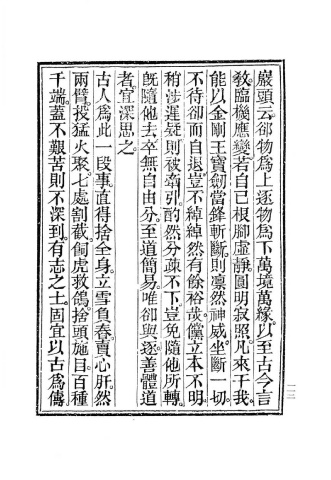 巖頭云。卻物爲上。逐物爲下。萬境萬緣。以至古今言
教。臨機應變。若自己根腳虛靜。圓明寂照。凡來干我。
能以金剛王寶劒當鋒斬斷。則凛然神威。坐斷一切。
不待卻而自退。豈不綽綽然有餘裕哉。儻立本不明。
稍涉遲疑。則被牽引。酌然分疎不下。豈免隨他所轉。
旣隨他去。卒無自由分。至道簡易。唯卻與逐。善體道
者。宜深思之。
古人爲此一段事。直得捨全身。立雪負舂。賣心肝。然
兩臂。投猛火聚。七處割截。飼虎救鴿。捨頭施目。百種
千端。蓋不艱苦則不深到。有志之士。固宜以古爲儔